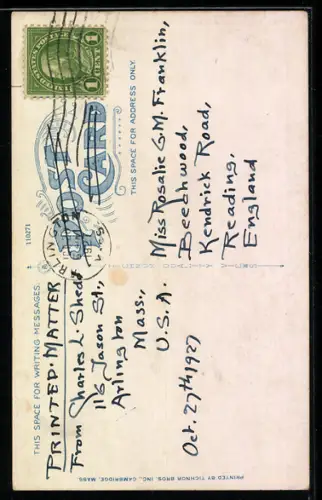 THIS SPACE FOR WRITING MESSAGES.
PRINTED MATTER
From Charles L. Shedd
116 Jason St.,
Arlington
Mass.,
U.S.A.
Oct. 27th 1927
110271
POST
CARD
THIS SPACE FOR ADDRESS ONLY.
Miss Rosalie G.M. Franklin,
Beechwood,
Kendrick Road,
Reading,
England
PRINTED BY TICHNOR BROS. INC., CAMBRIDGE, MASS.
1 CENT 1